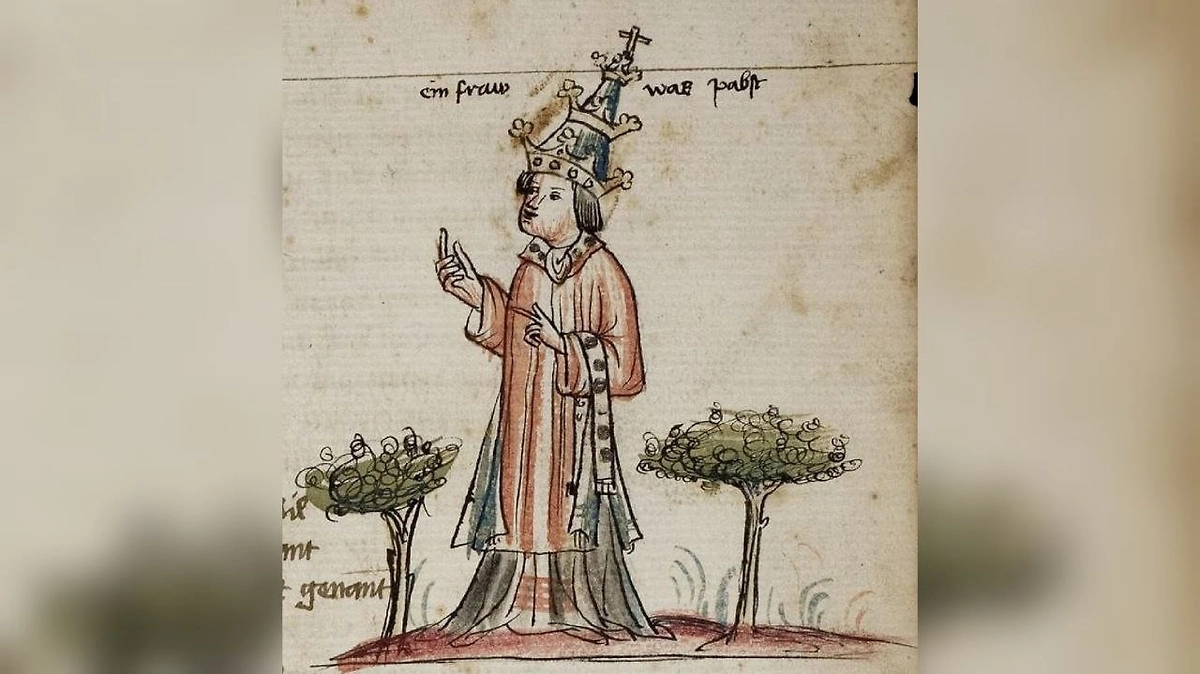 ein fraw was pabst
mt
genant